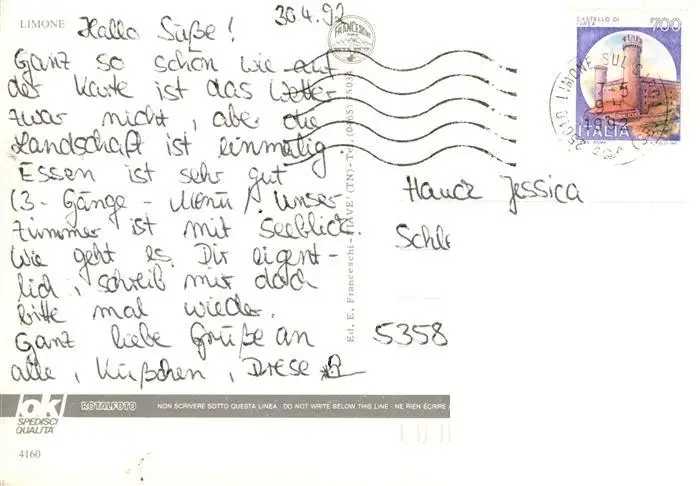 LIMONE
30.4.92
Hallo Süße!
Ganz so schön wie auf
der Karte ist das Wetter
zwar nicht, aber die
Landschaft ist einmalig
Essen ist sehr gut
(3-Gänge-Menü)! Unser
Zimmer ist mit Seeblick.
Wie geht es Dir eigent-
lich, schreib mir doch
bitte mal wieder.
Ganz liebe Grüße an
alle, Küßchen,
FRANCESCHI
Ed. E. Franceschi
CASTELLO DI
700
ITALIA
25010 LIMONE SUL
1992
Jessica
5358
ok
SPEDISCI
QUALITA'
ROTALFOTO
NON SCRIVERE SOTTO QUESTA LINEA - DO NOT WRITE BELOW THIS LINE - NE RIEN ÉCRIRE
4160